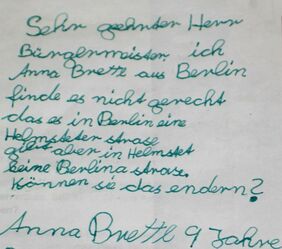 Sehr geehnter Herr
Bürgermeister. ich
Anna Brettl aus Berlin
finde es nicht gerecht
das es in Berlin eine
Helmsteter strase
gibt aber in Helmstet
keine Berlina strase.
Können sie das endern?
Anna Brettl 9 Jahre